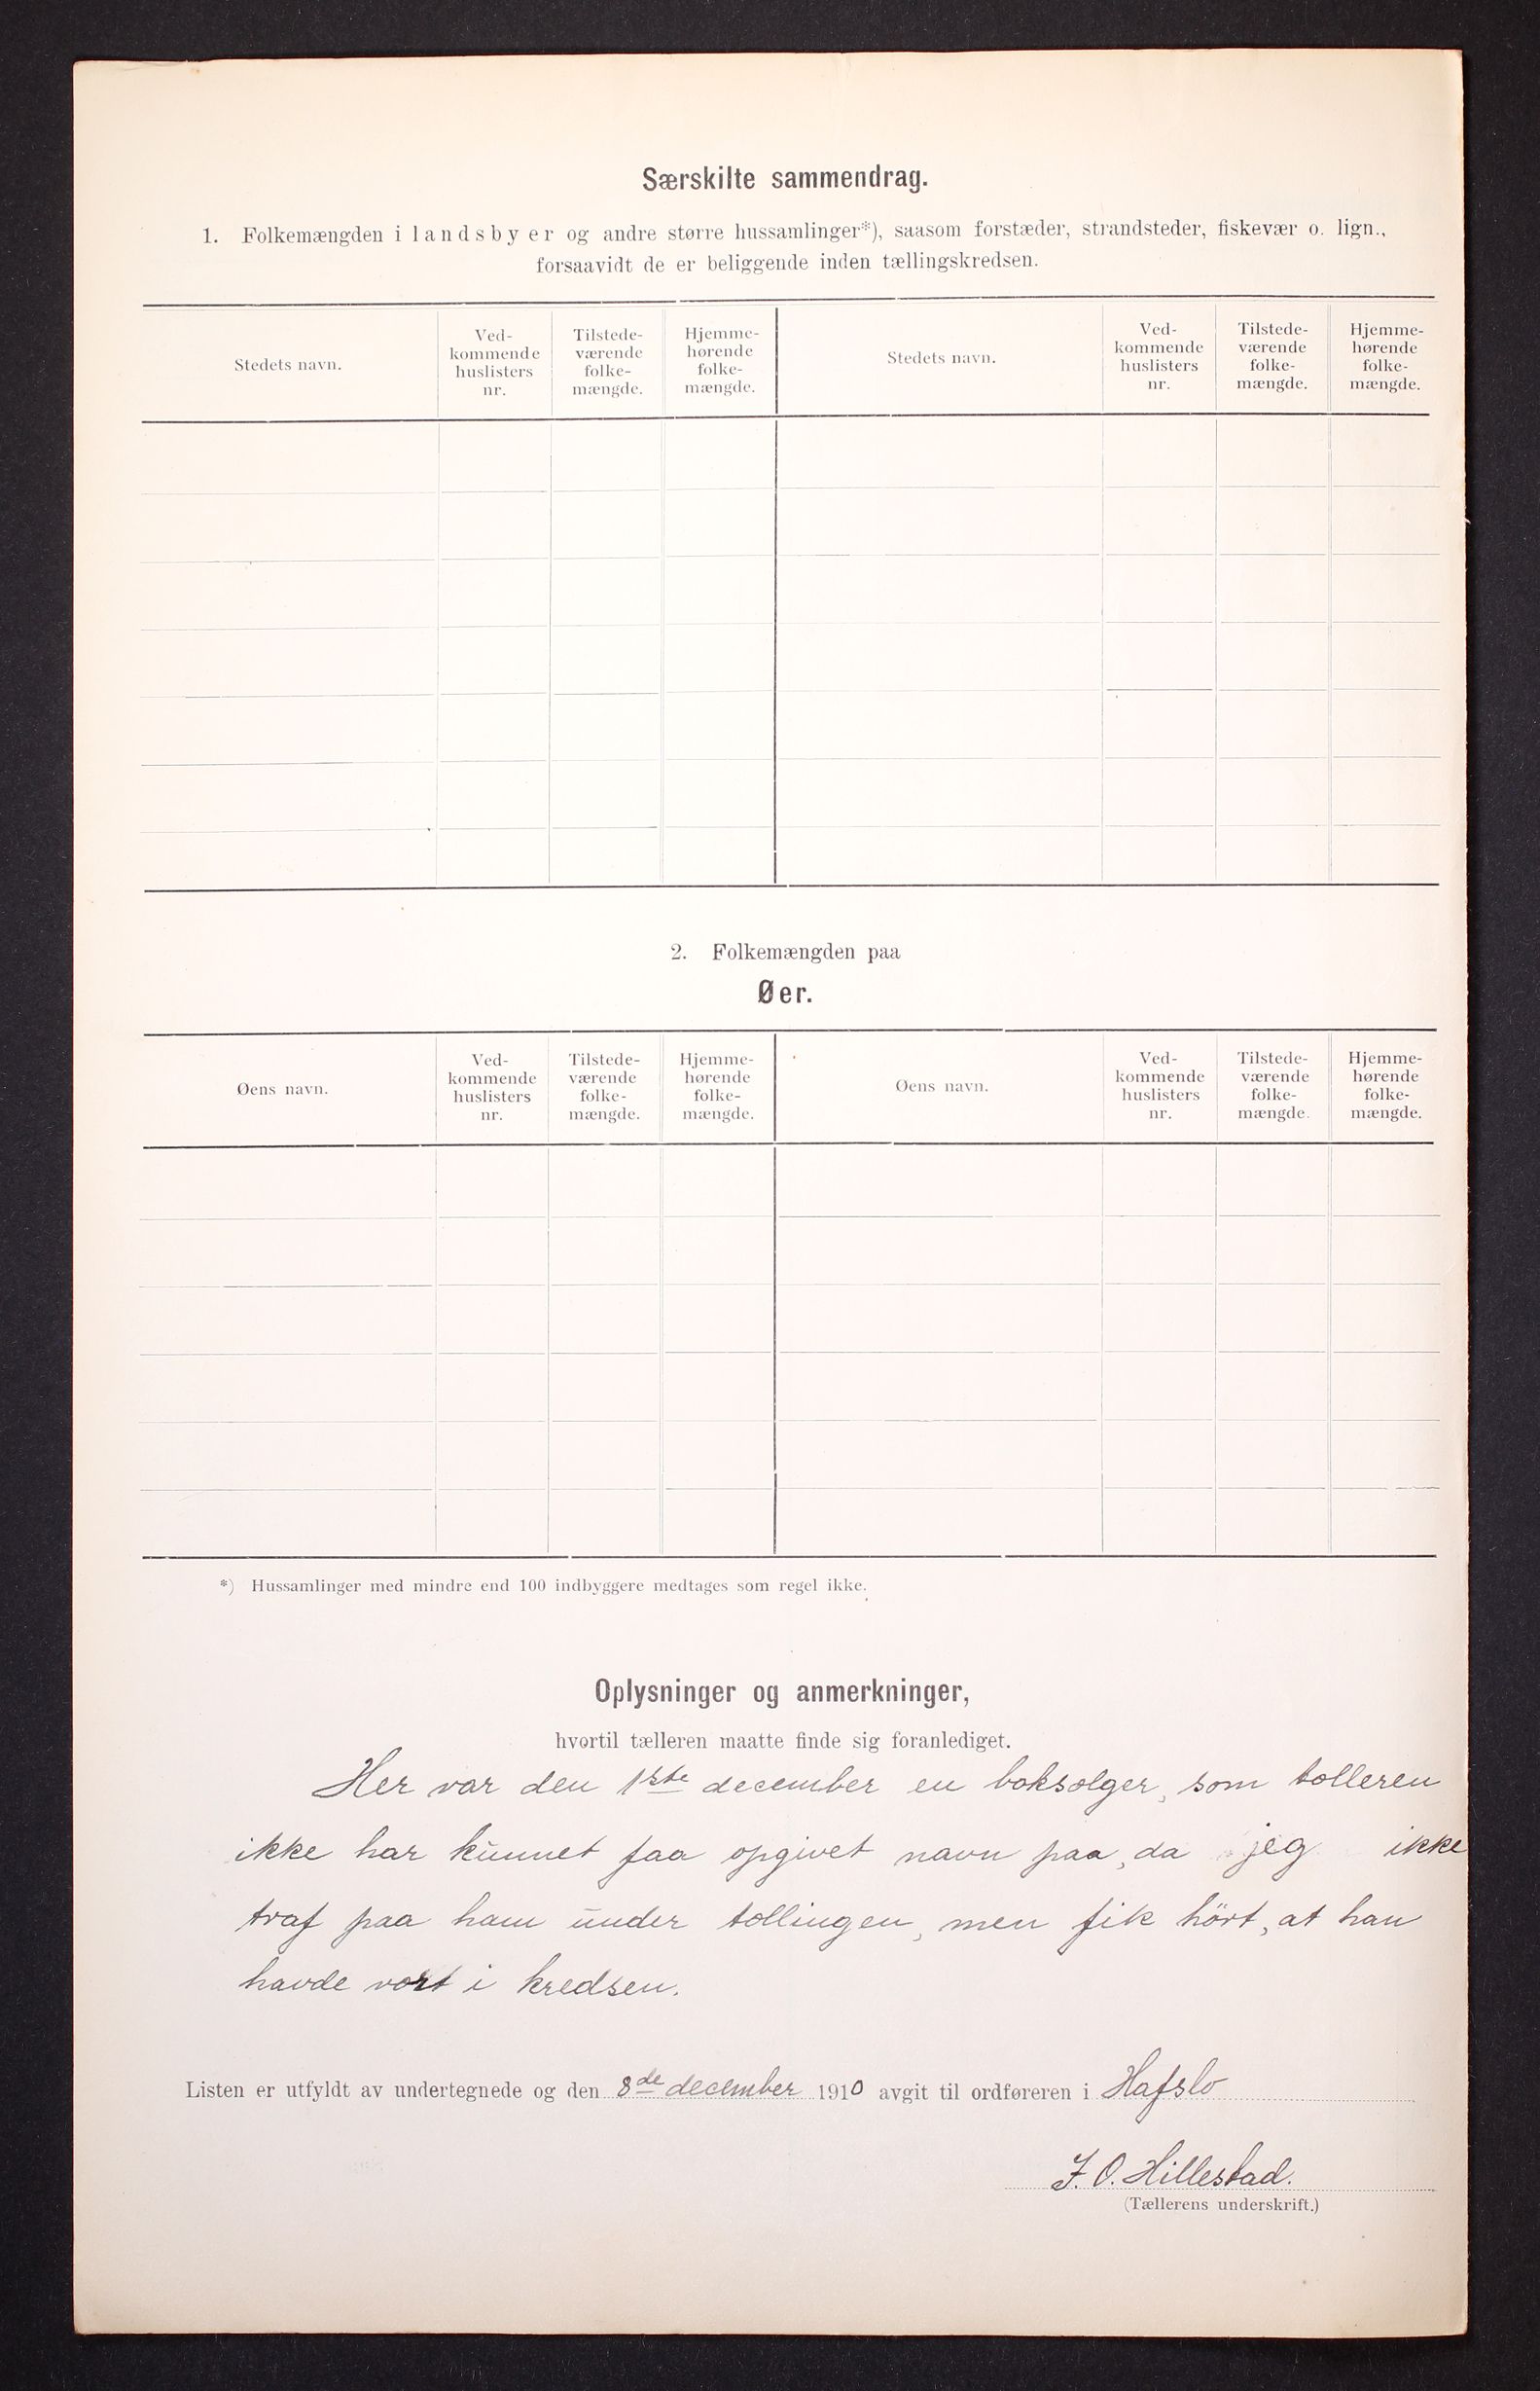 Særskilte sammendrag.
1. Folkemængden i landsbyer og andre større hussamlinger*), saasom forstæder, strandsteder, fiskevær o. lign.,
forsaavidt de er beliggende inden tællingskredsen.
Stedets navn.
Ved-
kommende
huslisters
nr.
Tilstede-
værende
folke-
mængde.
Hjemme-
hørende
folke-
mængde.
Stedets navn.
Ved-
kommende
huslisters
nr.
Tilstede-
værende
folke-
mængde.
Hjemme-
hørende
folke-
mængde.
2. Folkemængden paa
Øer.
Øens navn.
Ved-
kommende
huslisters
nr.
Tilstede-
værende
folke-
mængde.
Hjemme-
hørende
folke-
mængde.
Øens navn.
Ved-
kommende
huslisters
nr.
Tilstede-
værende
folke-
mængde.
Hjemme-
hørende
folke-
mængde.
*) Hussamlinger med mindre end 100 indbyggere medtages som regel ikke.
Oplysninger og anmerkninger,
hvortil tælleren maatte finde sig foranlediget.
Her var den 1ste december en boksolger, som tolleren
ikke har kunnet faa opgivet navn paa, da jeg ikke
traf paa ham under tollingen, men fik hört, at han
havde vort i kredsen.
Listen er utfyldt av undertegnede og den 8de december 1910 avgit til ordføreren i Hafslo
J. O. Hillestad.
(Tællerens underskrift.)